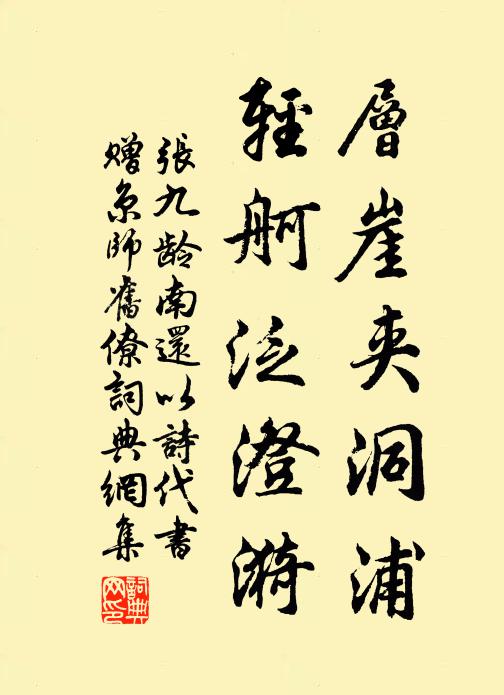 層崖夾洞浦
輕舸泛澄漪
張九龄南還以詩代書
贈京師舊僚詞典網集